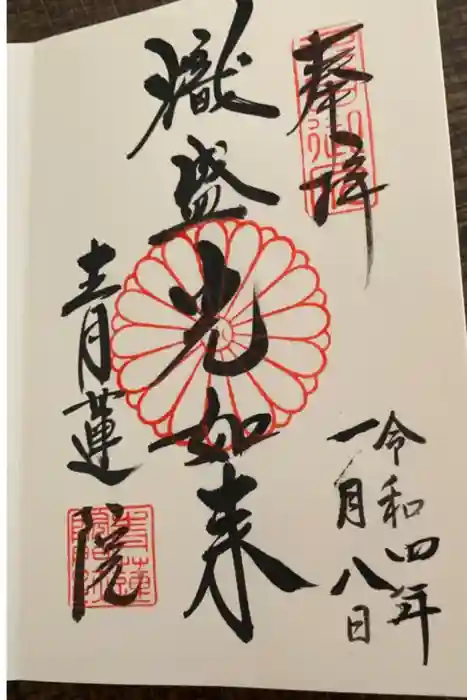 奉拝
令和四年
一月八日
熾盛光如来
青蓮院